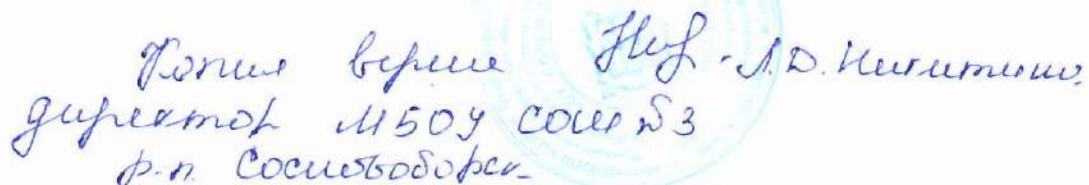 Копия верна Л.Д. Никитина
директор МБОУ СОШ №3
р.п. Сосновоборск